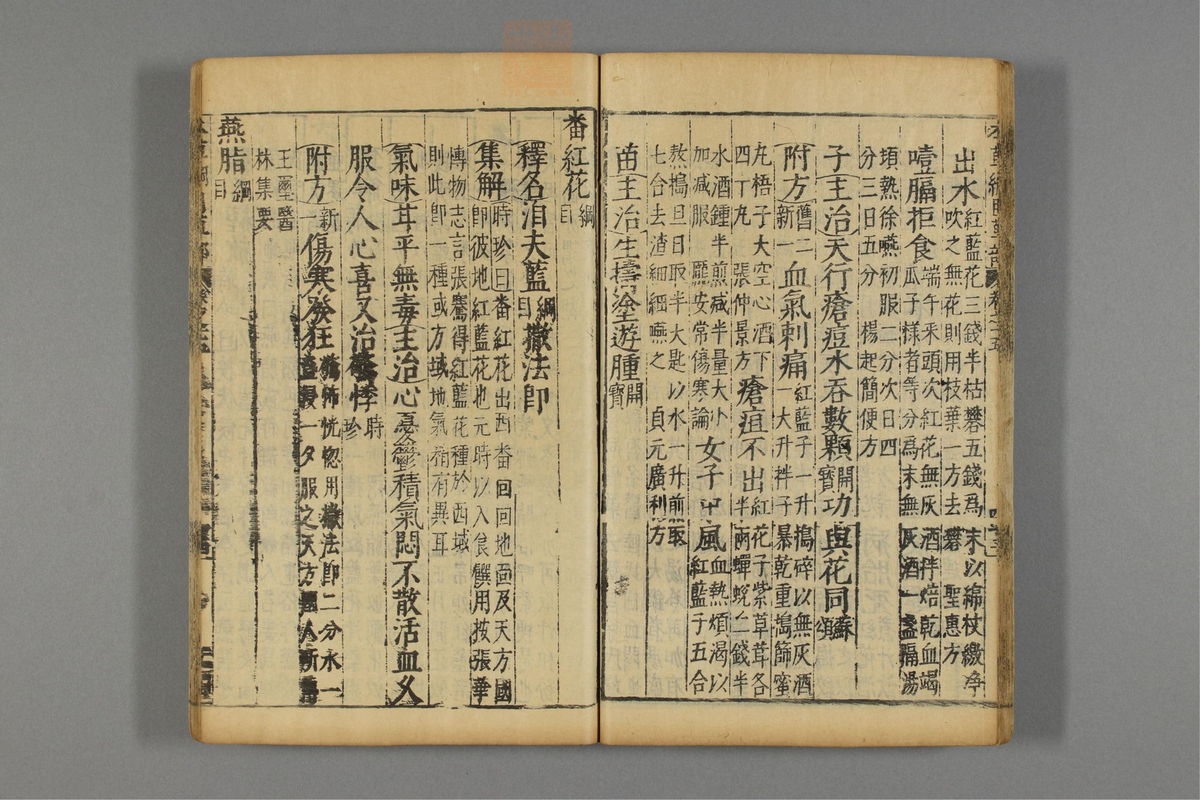 出水紅藍花三錢半枯礬五錢爲末以綿杖繳净
吹之無花則用枝葉一方去礬 聖惠方
噎膈拒食端午采頭次紅花無灰酒拌焙乾血竭
瓜子樣者等分爲末無灰酒一盞隔湯
頓熱徐嚥初服二分次日四
分三日五分 楊起簡便方
子主治天行瘡痘水吞數顆開寶功與花同蘇頌
附方舊二新一血氣刺痛紅藍子一升搗碎以無灰酒
一大升拌子暴乾重搗篩蜜
丸梧子大空心酒下
四丁丸 張仲景方瘡疽不出紅花子紫草茸各
半兩蟬蛻二錢半
水酒鍾半煎减半量大小
加减服 龐安常傷寒論女子中風血熱煩渴以
紅藍子五合
熬搗旦日取半大匙以水一升煎取
七合去渣細細嚥之 貞元廣利方
苗主治生擣塗遊腫開寶
番紅花綱目
釋名洎夫藍綱目撒法即
集解時珍曰番紅花出西番回回地面及天方國
即彼地紅藍花也元時以入食饌用按張華
博物志言張騫得紅藍花種於西域
則此即一種或方域地氣稍有異耳
氣味甘平無毒主治心憂鬱積氣悶不散活血久
服令人心喜又治驚悸時珍
附方新一傷寒發狂驚怖恍惚用撒法即二分水一
盞浸一夕服之天方國人所傳
王璽醫
林集要
燕脂綱目